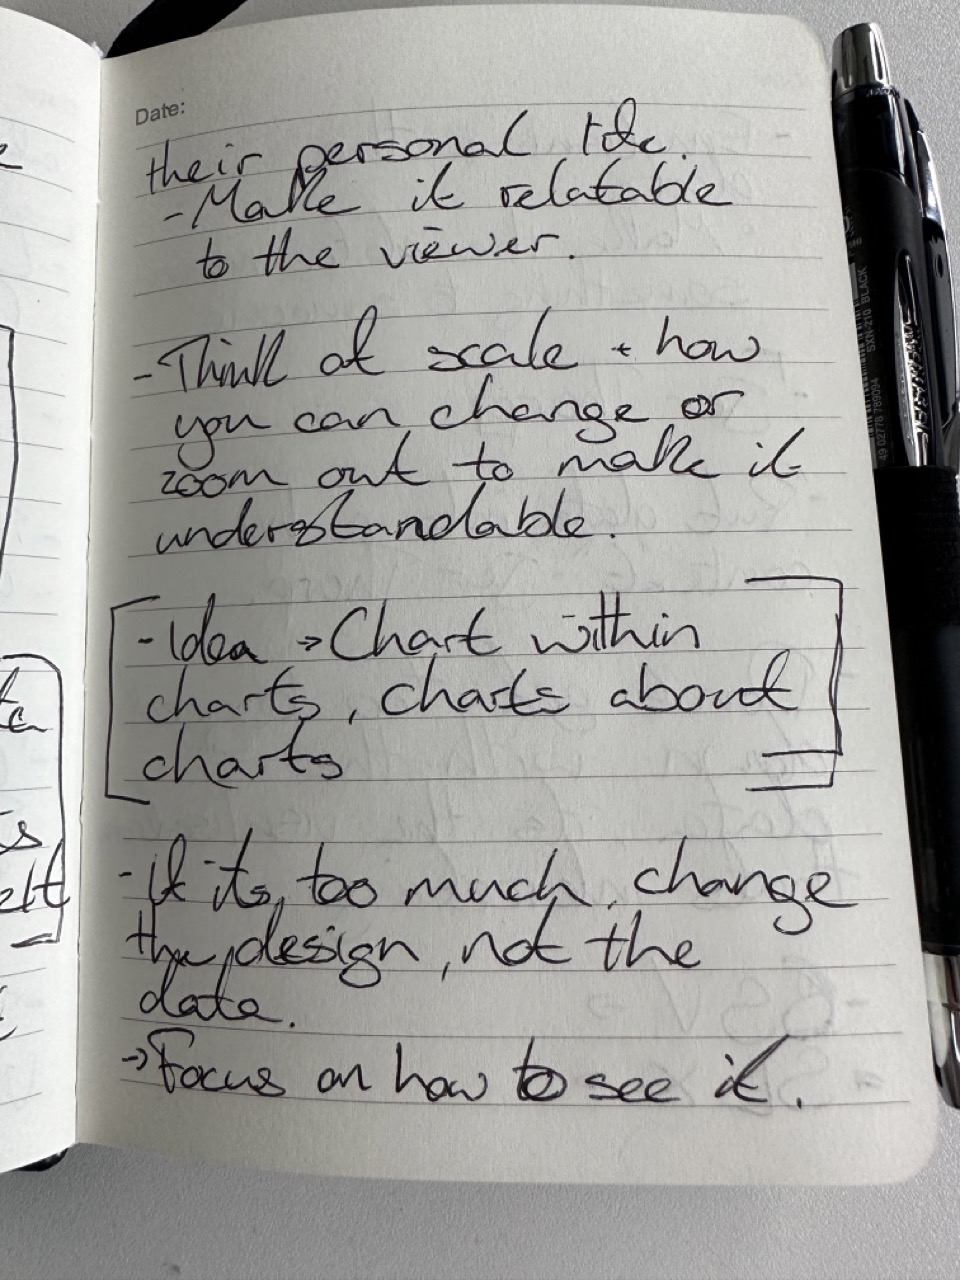 Date:
their personal life.
- Make it relatable
to the viewer.
- Think of scale + how
you can change or
zoom out to make it
understandable.
- Idea → Chart within
charts, charts about
charts
- If its too much, change
the design, not the
data.
→ Focus on how to see it.
49 02778 789094
SXN-210 BLACK